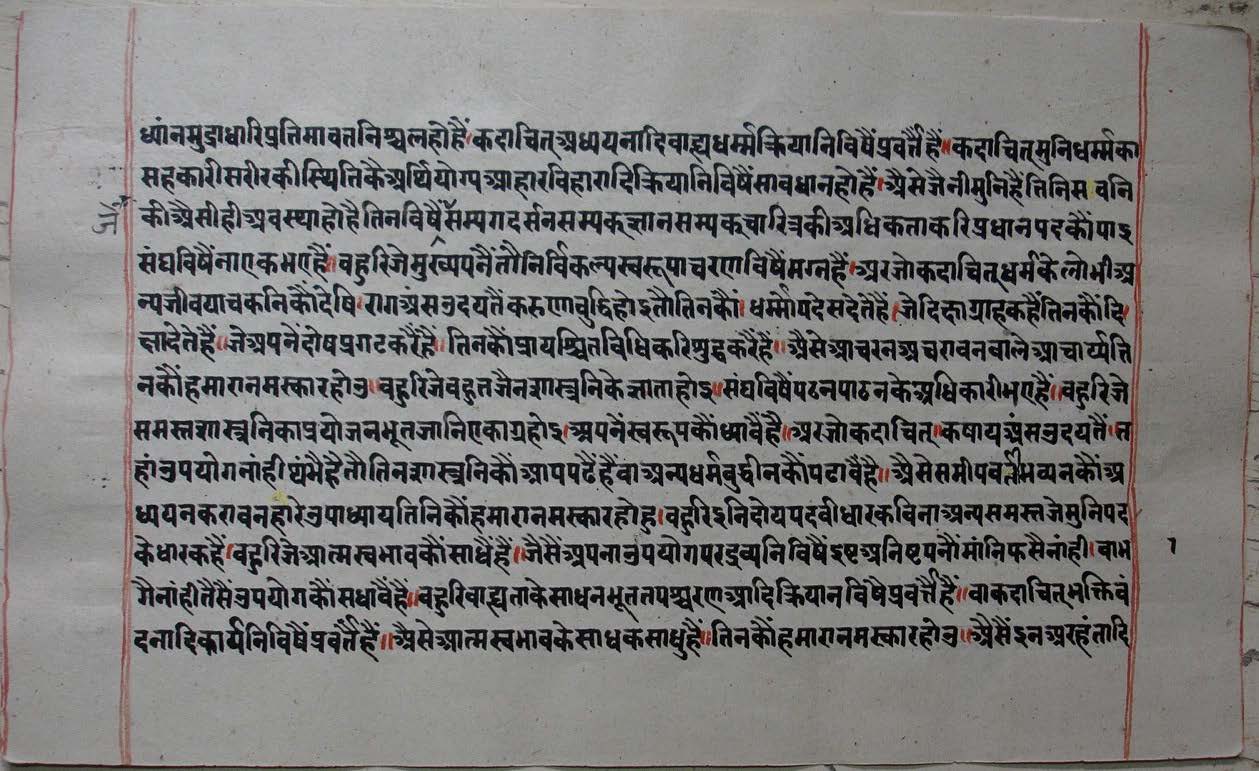 ध्यांनमुद्राधारिप्रतिमावतनिश्चलहोहैं।कदाचित्अध्ययनादिवाह्यधर्म्मक्रियानिविषैंप्रवर्त्तैहैं॥कदाचित्मुनिधर्म्मका
सहकारीसरीरकीस्थितिकैअर्थियोग्यआहारविहारादिक्रियानिविषैंसावधानहोहैं।अैसेजैनीमुनिहैंतिनिसवनि
कीअैसीहीअवस्थाहोहैतिनविषैंसम्यगदर्सनसम्यकज्ञानसम्यकचारित्रकीअधिकताकरिप्रधानपदकौंपाइ
जे
संघविषैंनाएकभएहैं।वहुरिजेमुख्यपनैंतौनिर्विकल्पस्वरूपाचरणविषैंमग्नहैं।अरजोकदाचित्धर्मकेलोभीअ
न्यजीवयाचकनिकौंदेषि।रागअंसउदयतैंकरुणावुद्धिहोइतौतिनकौं।धर्म्मोपदेसदेतेहैं।जेदिक्षाग्राहकहैंतिनकौंदि।
क्षादेतेहैं॥जेअपनेंदोषप्रगटकरैंहैं॥तिनकौंप्रायश्चितविधिकरिशुद्धकरैंहैं॥अैसेआचरनअचरावनवालेआचार्य्यति
नकौंहमारानमस्कारहोउ॥वहुरिजेवहुतजैनशास्त्रनिकेज्ञाताहोइ॥संघविषैंपठनपाठनकेअधिकारीभएहैं॥वहुरिजे
समस्तशास्त्रनिकाप्रयोजनभूतजानिएकाग्रहोइ।अपनेंस्वरूपकौंध्यावैंहै॥अरजोकदाचित्।कषायअंसउदयतैं।त
हांउपयोगनांहीथंभैहैतौतिनशास्त्रनिकौंआपपढैंहैंवाअन्यधर्मवुद्धीनकौंपढावैंहै॥अैसेसमीपवर्तीभव्यनकौंअ
ध्ययनकरावनहारेउपाध्यायतिनिकौंहमारानमस्कारहोहु।वहुरिइनिदोयपदवीधारकविनाअन्यसमस्तजेमुनिपद
केधारकहैं।वहुरिजेआत्मस्वभावकौंसाधैंहैं॥जैसैंअपनाउपयोगपरद्रव्यनिविषैंइष्टअनिष्टपनौंमांनिफसैनांही।वाभ
१
गैनांहीतैसैंउपयोगकौंसधावैंहैं॥वहुरिवाह्यताकेसाधनभूततपश्चरणआदिक्रियानविषैप्रवर्त्तैंहैं॥वाकदाचित्भक्तिवं
दनादिकार्यनिविषैंप्रवर्तैंहैं॥अैसेआत्मस्वभावकेसाधकसाधुहैं॥तिनकौंहमारानमस्कारहोउ॥अैसैंइनअरहंतादि